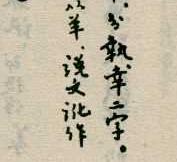 分執、幸二字。
从羊、說文訛作